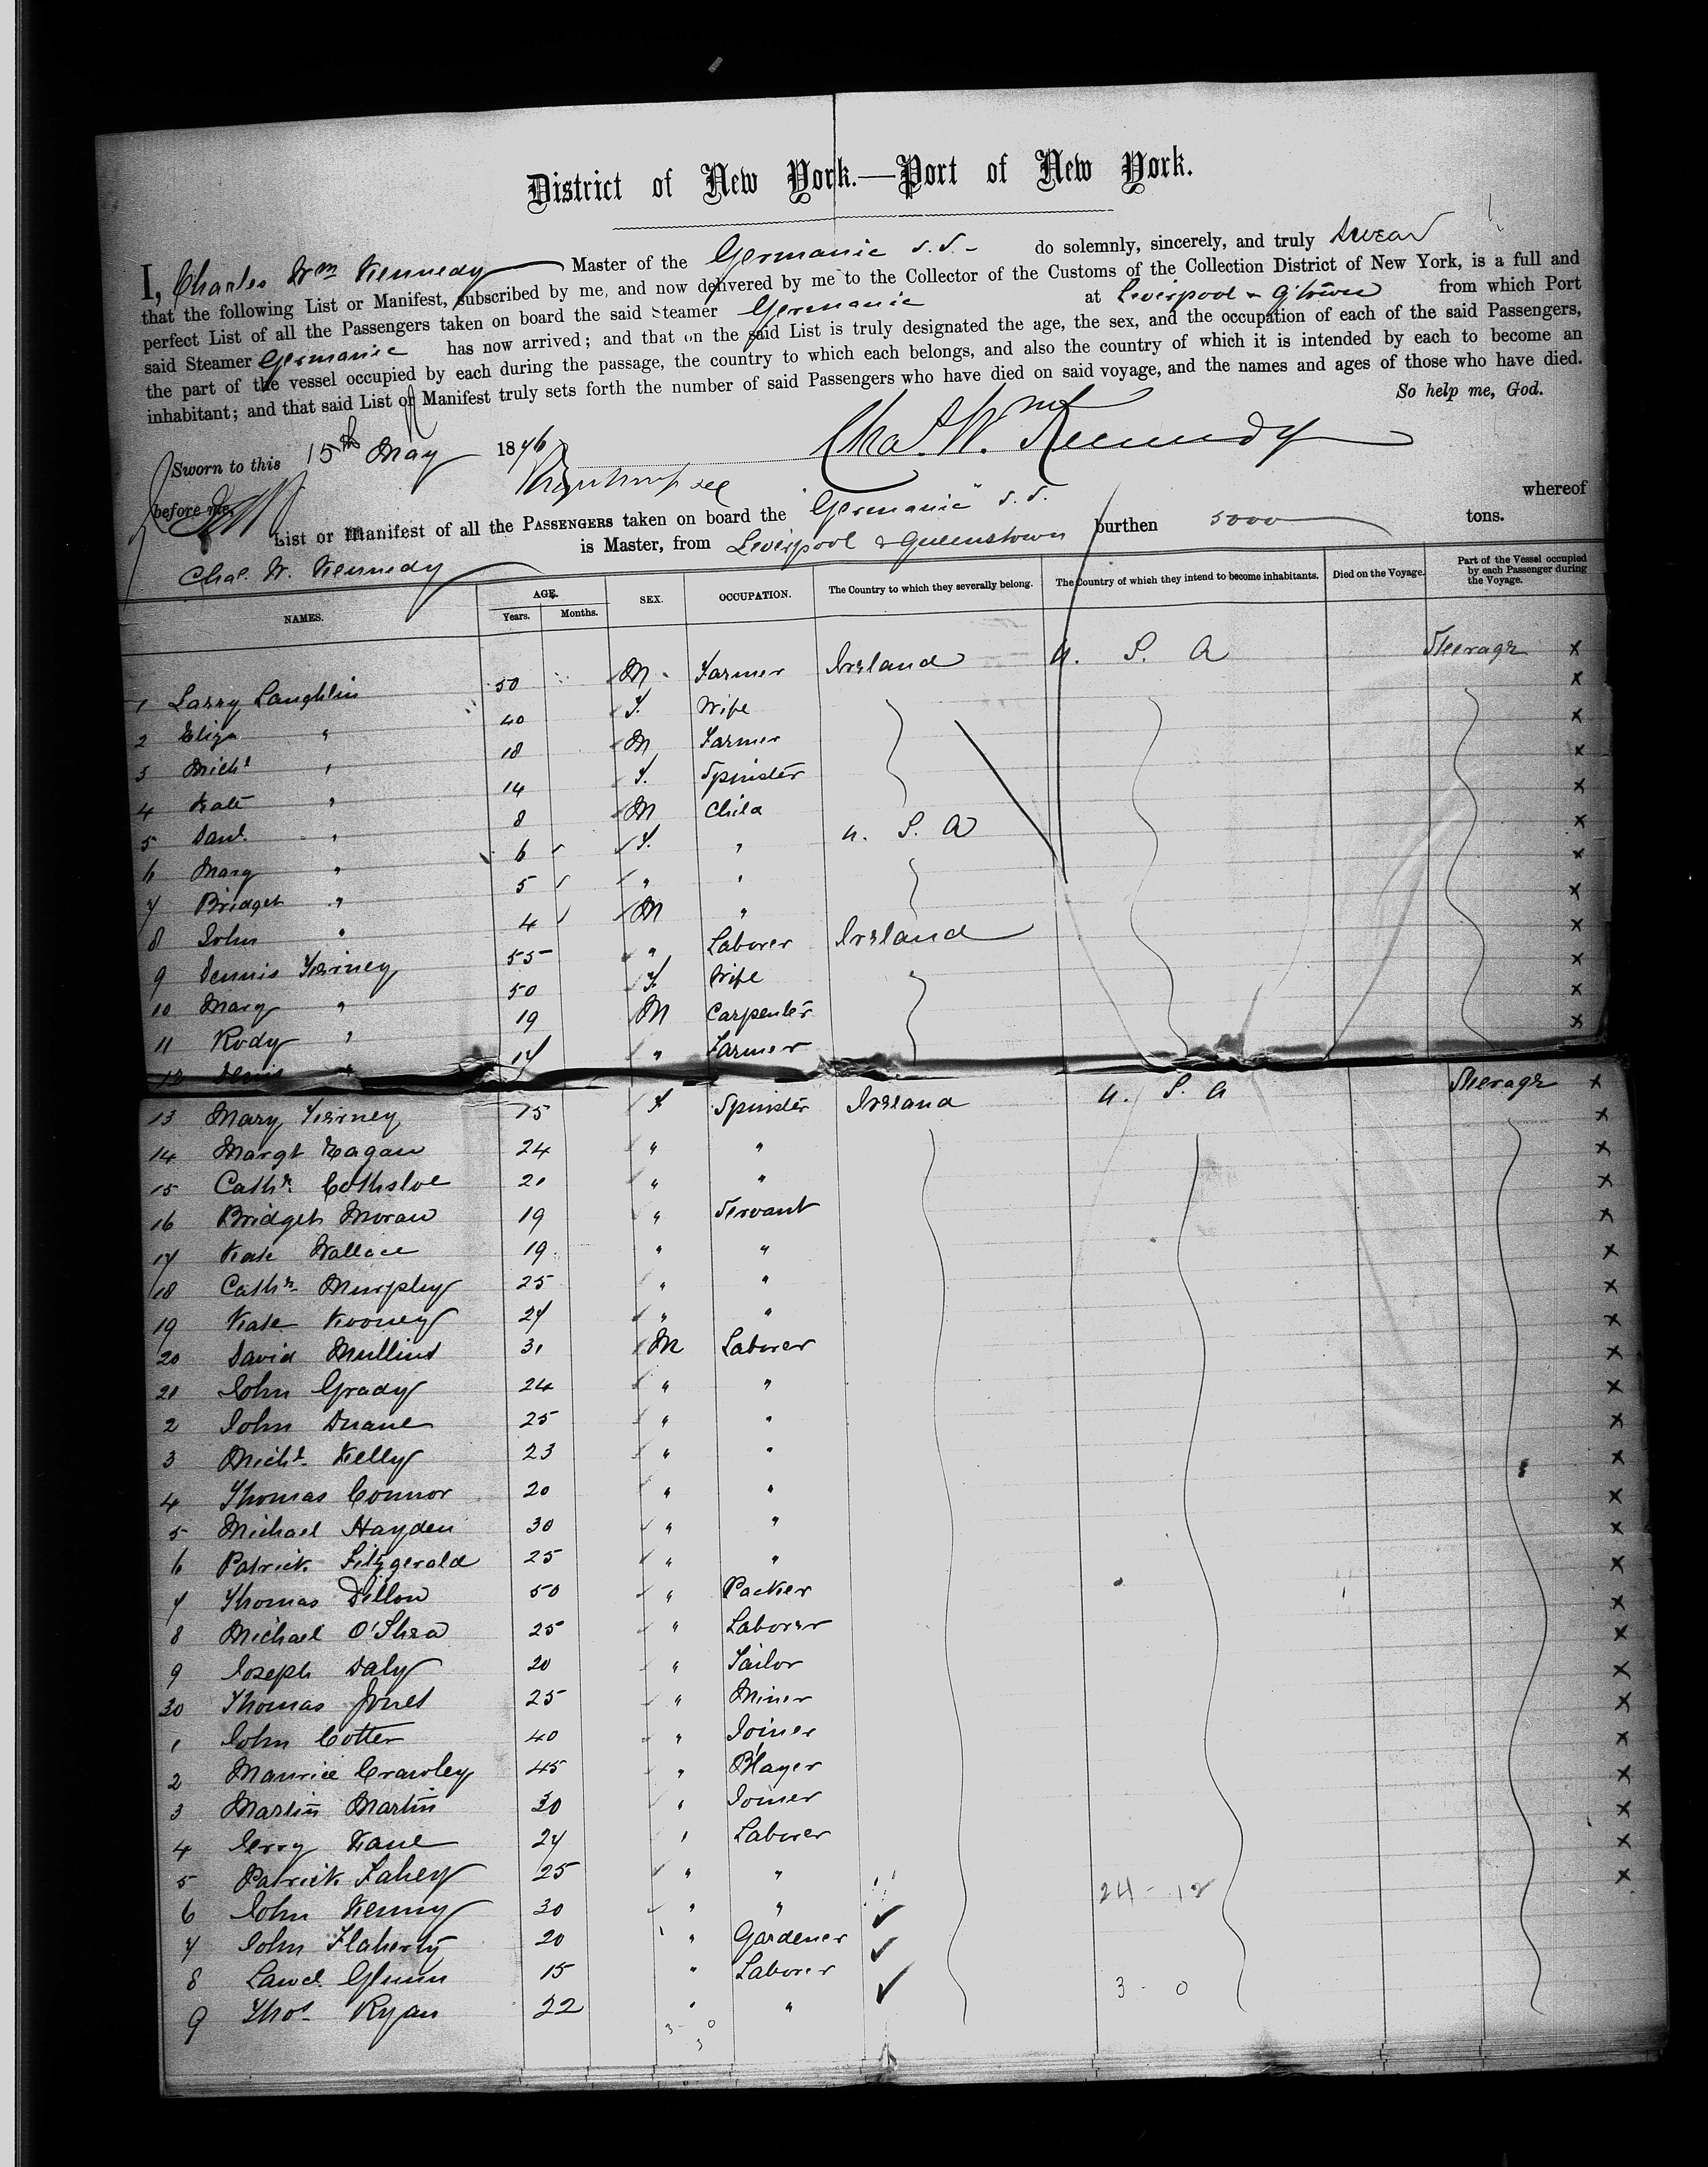 District of New York.—Port of New York.
I, Charles Wm Kennedy Master of the Germanic S.S. do solemnly, sincerely, and truly swear
that the following List or Manifest, subscribed by me, and now delivered by me to the Collector of the Customs of the Collection District of New York, is a full and
perfect List of all the Passengers taken on board the said Steamer Germanic at Liverpool & Q'town from which Port
said Steamer Germanic has now arrived; and that on the said List is truly designated the age, the sex, and the occupation of each of the said Passengers,
the part of the vessel occupied by each during the passage, the country to which each belongs, and also the country of which it is intended by each to become an
inhabitant; and that said List or Manifest truly sets forth the number of said Passengers who have died on said voyage, and the names and ages of those who have died.
So help me, God.
Sworn to this 15th May 1876 Chas. Wm Kennedy
before me,
List or Manifest of all the PASSENGERS taken on board the "Germanic" S.S. whereof
Chas. W. Kennedy is Master, from Liverpool & Queenstown burthen 5000 tons.
NAMES. AGE. Years. Months. SEX. OCCUPATION. The Country to which they severally belong. The Country of which they intend to become inhabitants. Died on the Voyage. Part of the Vessel occupied by each Passenger during the Voyage.
1 Larry Laughlin 50 M Farmer Ireland U. S. A Steerage x
2 Eliza " 40 F. Wife x
3 Michl " 18 M Farmer x
4 Kate " 14 F. Spinster x
5 Danl. " 8 M Child x
6 Mary " 6 F. " U. S. A x
7 Bridget " 5 " " x
8 John " 4 M " x
9 Dennis Tierney 55 " Laborer Ireland x
10 Mary " 50 F. Wife x
11 Rody " 19 M Carpenter x
12 Denis " 17 " Farmer x
13 Mary Tierney 15 F Spinster Ireland U. S. A Steerage x
14 Margt Eagan 24 " " x
15 Cathn. 21 " " x
16 Bridget Moran 19 " Servant x
17 Kate Wallace 19 " " x
18 Cathn. Murphy 25 " " x
19 Kate Rooney 27 " " x
20 David Mullins 31 M Laborer x
21 John Grady 24 " " x
2 John Duane 25 " " x
3 Michl. Kelly 23 " " x
4 Thomas Connor 20 " " x
5 Michael Hayden 30 " " x
6 Patrick Fitzgerald 25 " " x
7 Thomas Dillon 50 " Packer x
8 Michael O'Shea 25 " Laborer x
9 Joseph Daly 20 " Tailor x
30 Thomas Jones 25 " Miner x
1 John Cotter 40 " Joiner x
2 Maurice Crawley 45 " B'layer x
3 Martin Martin 30 " Joiner x
4 Jerry Kane 27 " Laborer x
5 Patrick Fahey 25 " " x
6 John Kenny 30 " " 24 - 12
7 John Flaherty 20 " Gardener
8 Lawce. Glynn 15 " Laborer
9 Thos. Ryan 22 " " 3 - 0